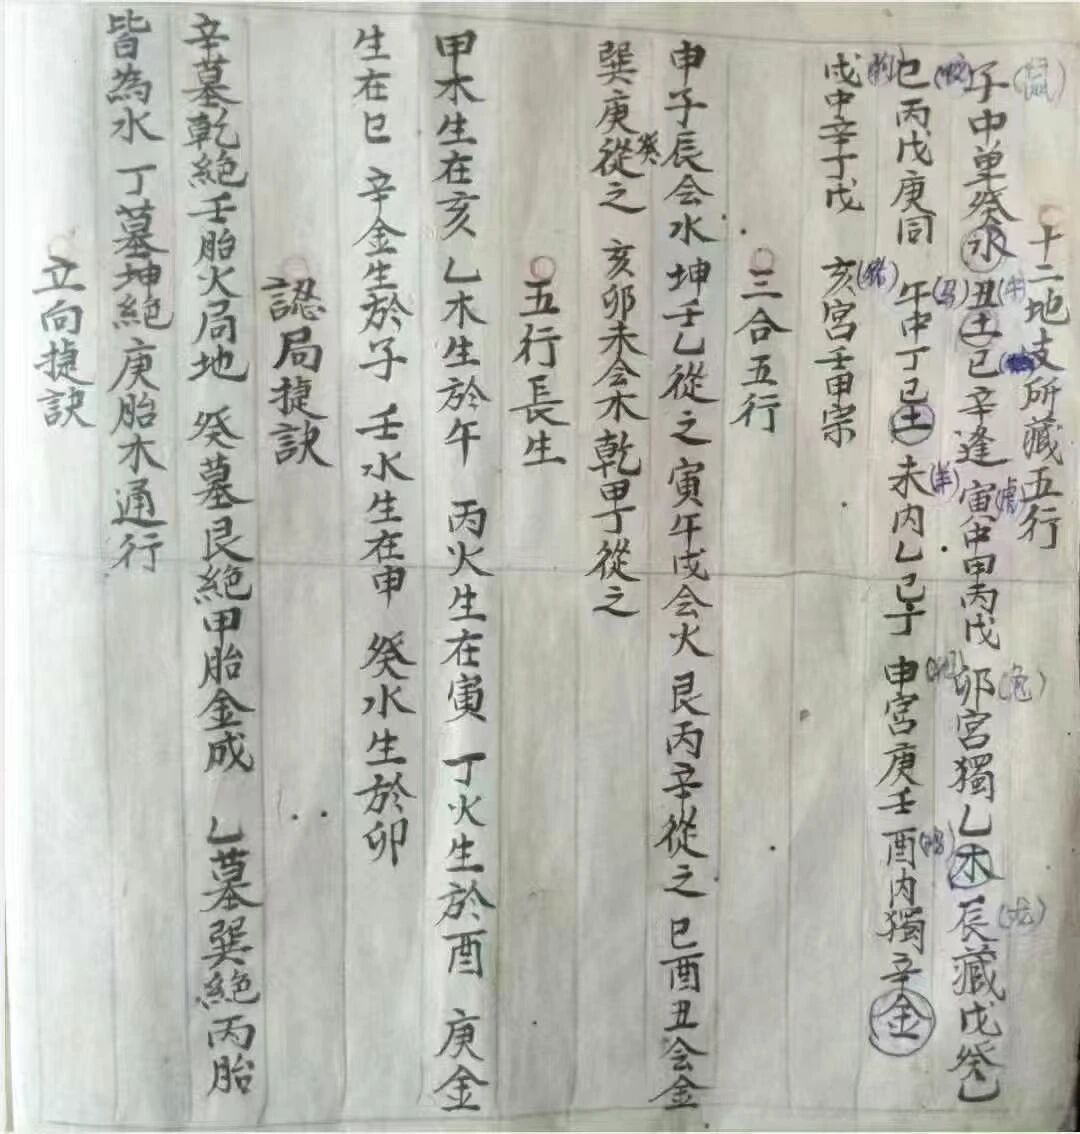 十二地支所藏五行
子(鼠)中单癸水 丑(牛)土己辛逢 寅(虎)中甲丙戊 卯(兔)宮獨乙木 辰(龙)藏戊癸乙
巳(蛇)丙戊庚同 午(马)中丁己土 未(羊)内乙己丁 申(猴)宮庚壬 酉(鸡)内獨辛金
戌(狗)中辛丁戊 亥(猪)宮壬甲宗
三合五行
申子辰会水 坤壬乙從之 寅午戌会火 艮丙辛從之 巳酉丑会金
巽庚癸從之 亥卯未会木 乾甲丁從之
五行長生
甲木生在亥 乙木生於午 丙火生在寅 丁火生於酉 庚金
生在巳 辛金生於子 壬水生在申 癸水生於卯
認局捷訣
辛墓乾絕壬胎火局地 癸墓艮絕甲胎金成 乙墓巽絕丙胎
皆為水 丁墓坤絕庚胎木通行
立向捷訣